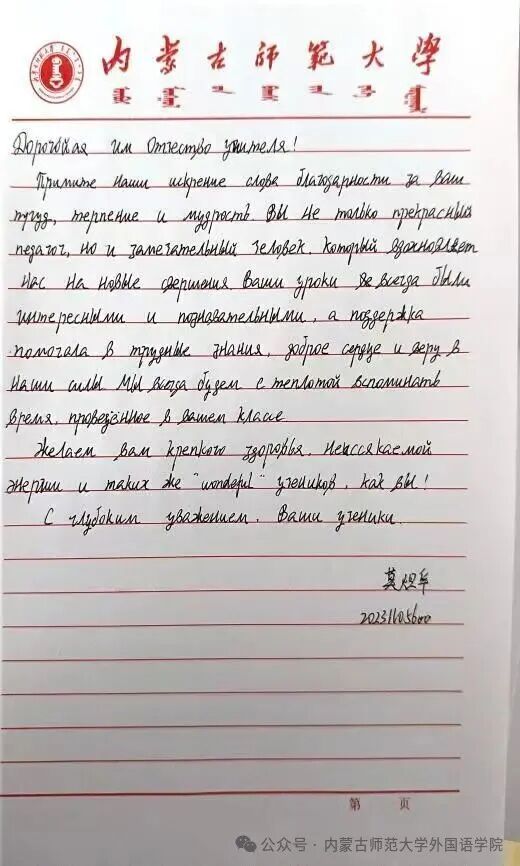 内蒙古师范大学
Дорогойая им Отчество учителя!
Примите наши искрение слова благодарности за ваш
труд, терпение и мудрость. Вы не только прекрасный
педагог, но и замечательный человек. который вдохновляет
нас на новые свершения. Ваши уроки всегда были
интересными и познавательными, а поддержка
помогала в трудные знания, доброе сердце и веру в
наши силы Мы всегда будем с теплотой вспоминать
время, проведённое в вашем классе.
Желаем вам крепкого здоровья. неиссякаемой
энергии и таких же "wonderful" учеников. как вы!
С глубоким уважением. Ваши ученики.
莫
第 页
公众号 · 内蒙古师范大学外国语学院